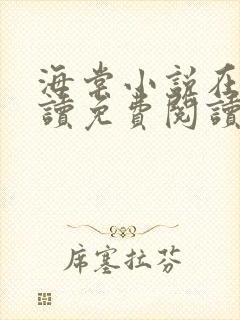 海棠小說在
讀免費閱讀
席塞拉芬